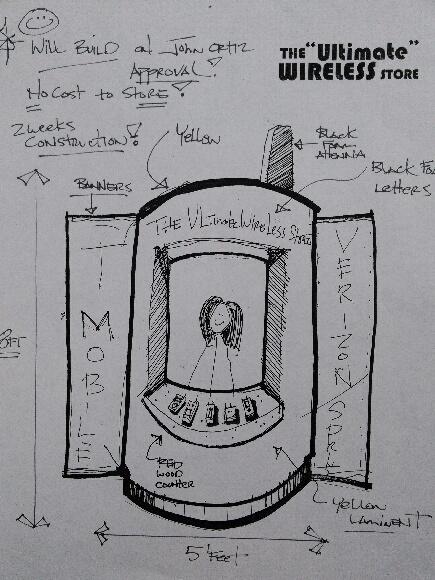 Will Build on John Ortiz
Approval!
No Cost to Store!
THE "Ultimate"
WIRELESS STORE
2 weeks
Construction!
Yellow
Black
Foam
Black Foam
Letters
Banners
The Ultimate Wireless Store
T MOBILE
VERIZON SPR
8FT
Red
Wood
Counter
Yellow
Laminent
5 Feet